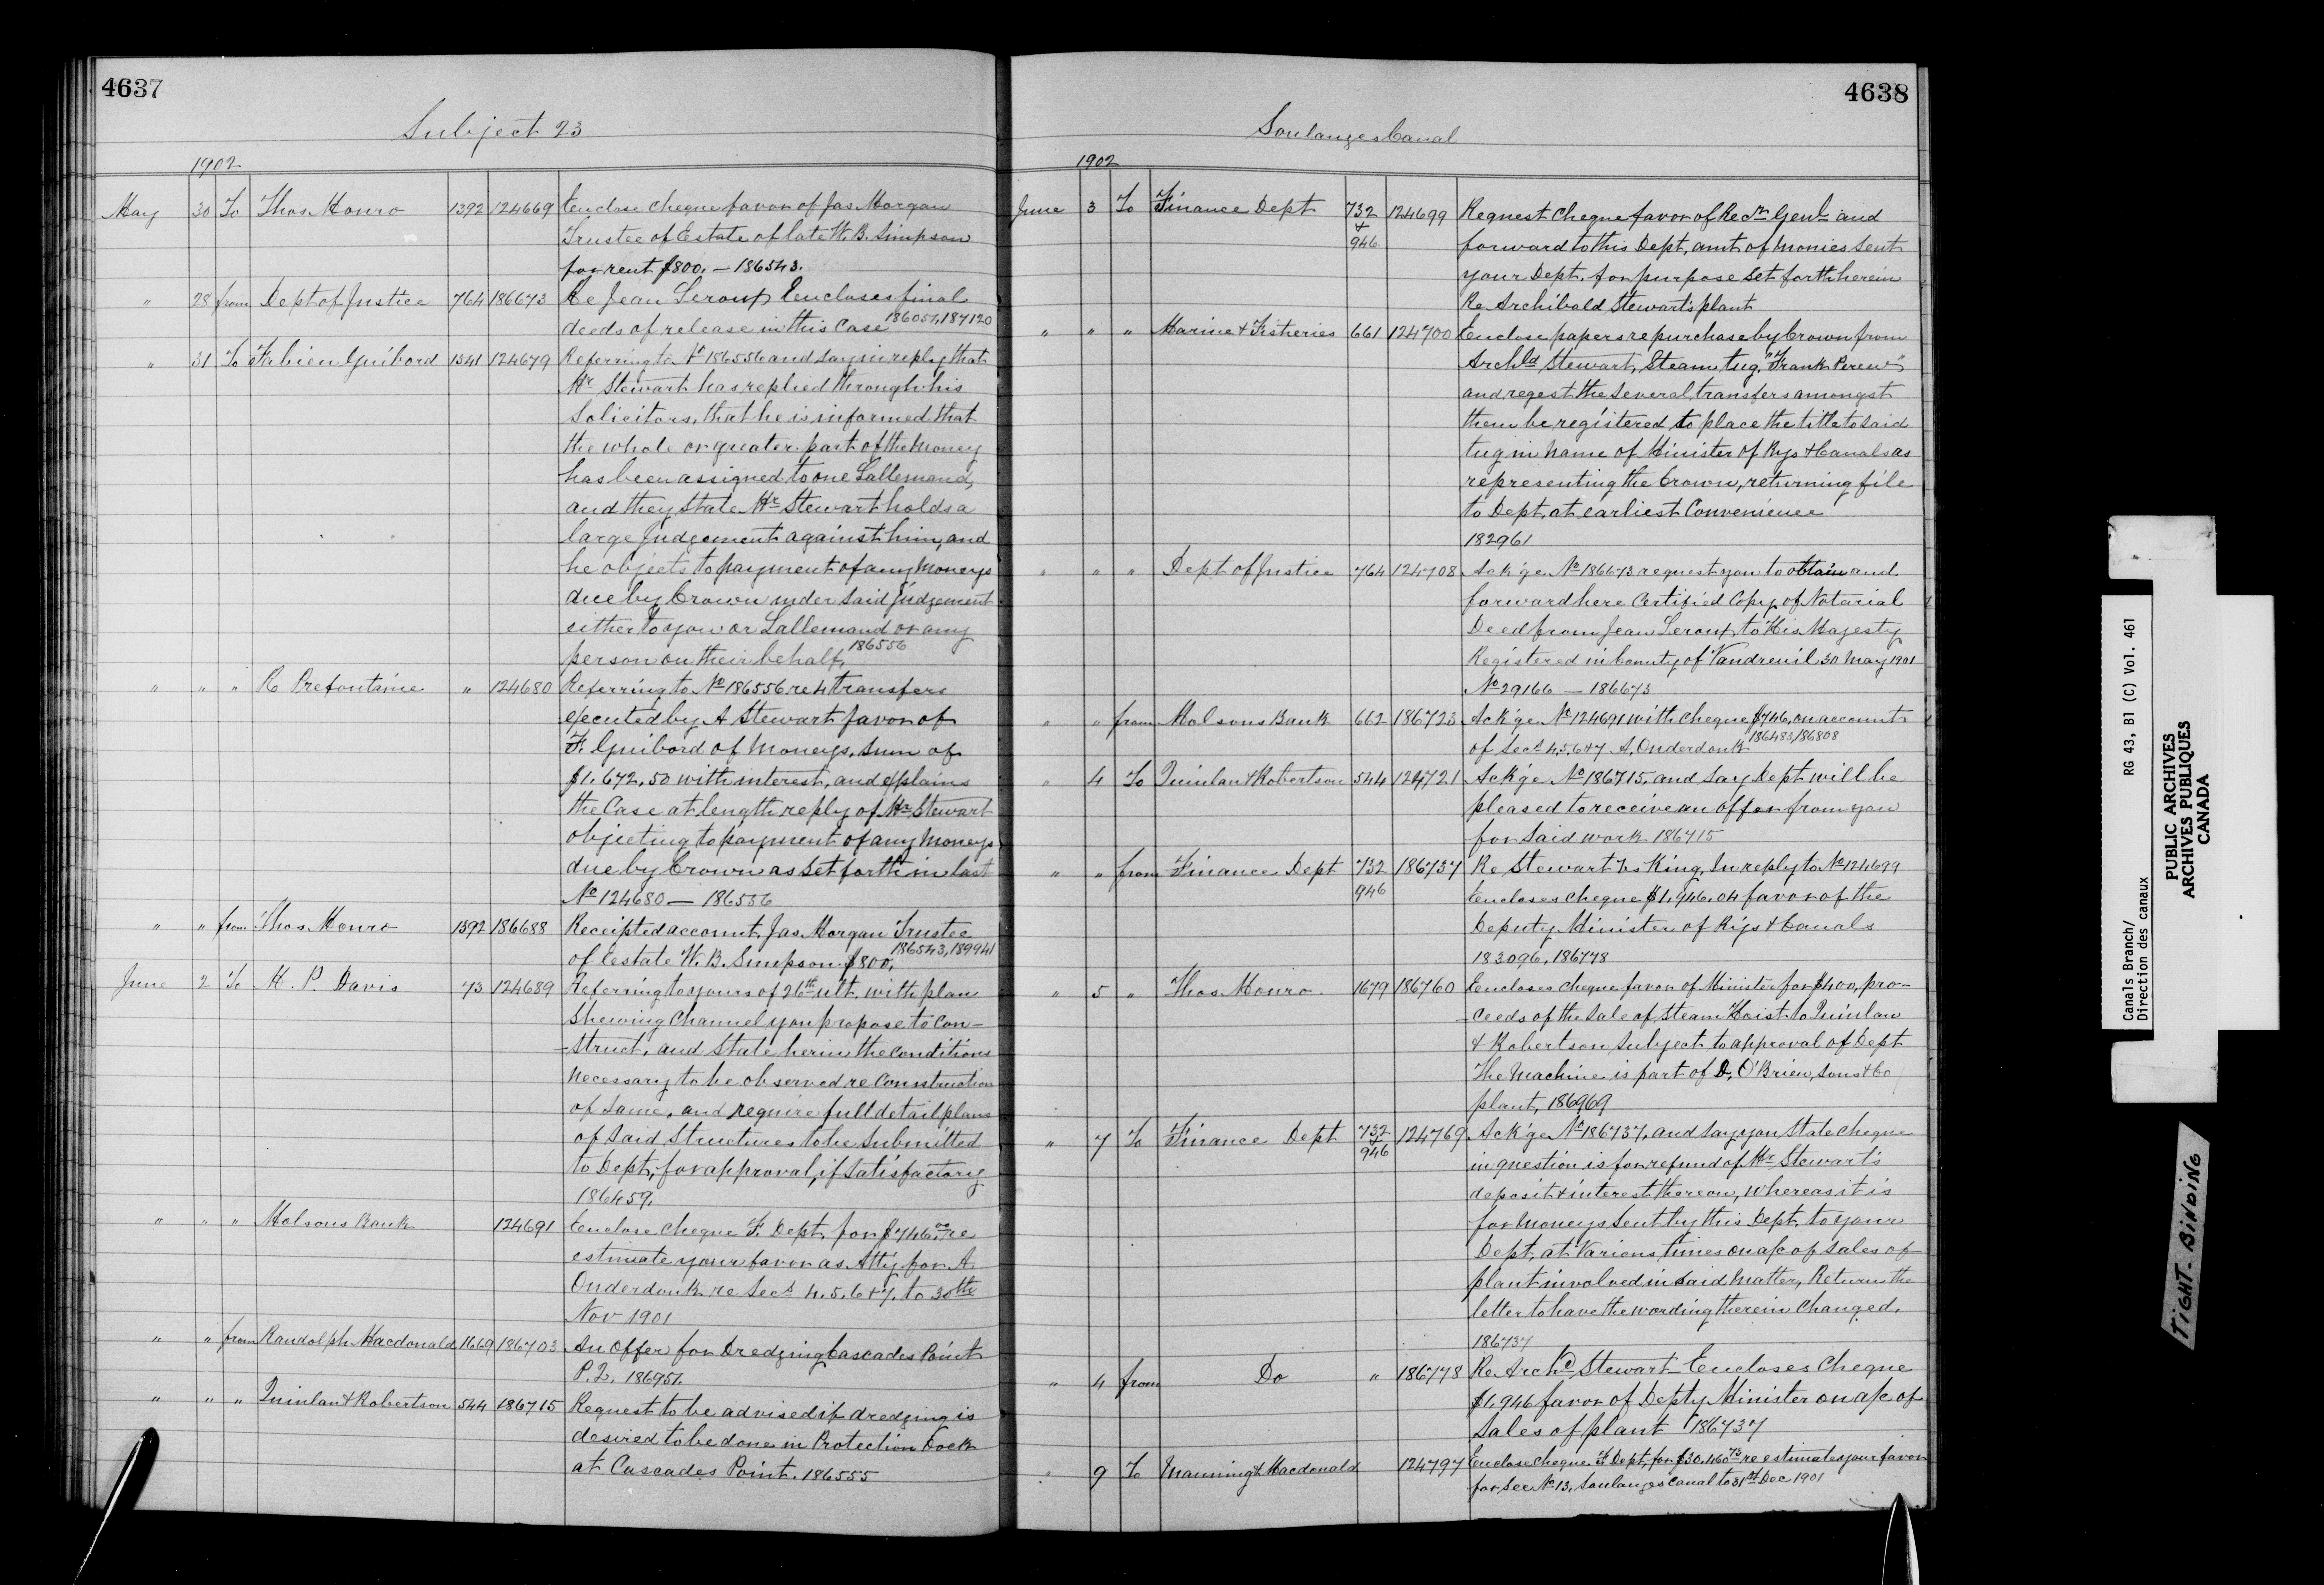 4637
Subject 23
1902
May 30 To Thos. Monro 1392 124669 Enclose cheque favor of Jas Morgan
Trustee of Estate of late W. B. Simpson
for rent $800. — 186543.
" 28 from Dept of Justice 764 186673 Re Jean Leroux Encloses final
deeds of release in this case 186057, 187120
" 31 To Fabien Guibord 1341 124679 Referring to No 186556 and say in reply that
Mr Stewart has replied through his
Solicitors, that he is informed that
the whole or greater part of the Money
has been assigned to one Lallemand,
and they state Mr Stewart holds a
large Judgement against him, and
he objects to payment of any Moneys
due by Crown under said judgement
either to you or Lallemand or any
person on their behalf, 186556
" " " R Prefontaine " 124680 Referring to No 186556 re 4 transfers
executed by A Stewart favor of
F. Guibord of Moneys, sum of
$1,672.50 with interest, and explains
the Case at length reply of Mr Stewart
objecting to payment of any Moneys
due by Crown as set forth in last
No 124680 — 186556
" " from Thos. Monro 1392 186688 Receipted account Jas Morgan Trustee
of estate W. B. Simpson $800, 186543, 189941
June 2 To M. P. Davis 73 124689 Referring to yours of 26th ult. with plan
shewing Channel you propose to con-
-struct, and state herein the conditions
necessary to be observed re Construction
of same, and require full detail plans
of said structures to be submitted
to Dept, for approval, if satisfactory
186459.
" " " Molsons Bank 124691 Enclose cheque F. Dept for $746.00 re
estimate your favor as Atty for A
Onderdonk re Secs 4.5.6 & 7. to 30th
Nov 1901
" " from Randolph Macdonald 1669 186703 An Offer for Dredging Cascades Point
P.Q. 186951.
" " " Quinlan & Robertson 544 186715 Request to be advised if dredging is
desired to be done in Protection Dock
at Cascades Point. 186555
4638
Soulanges Canal
1902
June 3 To Finance Dept 732 124699 Request cheque favor of Recr Genl and
& 946 forward to this Dept, amt of monies sent
your Dept. for purpose set forth herein
Re Archibald Stewart's plant
" " " Marine & Fisheries 661 124700 Enclose papers re purchase by Crown from
Archld Stewart, Steam tug, "Frank Perew"
and reqest the several transfers amongst
them be registered to place the title to said
tug in name of Minister of Rys & Canals as
representing the Crown, returning file
to Dept, at earliest Convenience
182961
" " " Dept of Justice 764 124708 Ack'ge No 186673 request you to obtain and
forward here Certified Copy of Notarial
Deed from Jean Leroux to His Majesty
Registered in County of Vaudreuil 30 May 1901
No 29166 — 186673
" " from Molsons Bank 662 186723 Ack'ge No 124691 with cheque $746, on account
of Secs 4,5,6 & 7 A. Onderdonk 186483, 186808
" 4 To Quinlan & Robertson 544 124721 Ack'ge No 186715, and say Dept will be
pleased to receive an offer from you
for said work 186715
" " from Finance Dept 732 186737 Re Stewart Vs King, In reply to No 124699
946 Encloses cheque $1,946.04 favor of the
Deputy Minister of Rys & Canals
183096, 186778
" 5 " Thos. Monro 1679 186760 Encloses cheque favor of Minister for $400, pro-
-ceeds of the sale of Steam Hoist to Quinlan
& Robertson subject to approval of Dept
The Machine is part of D. O'Brien, Sons & Co
plant, 186969
" 7 To Finance Dept 732 & 946 124769 Ack'ge No 186737, and say you state cheque
in question is for refund of Mr Stewart's
deposit & interest thereon, whereas it is
for Moneys sent by this Dept. to your
Dept, at Various times on a/c of sales of
plant involved in said matter, Return the
letter to have the wording therein changed.
186737
" 4 from Do " 186778 Re Archd Stewart Encloses Cheque
$1,946 favor of Depty Minister on a/c of
Sales of plant 186737
" 9 To Manning & Macdonald 124797 Enclose cheque F Dept, for $30,460.73 re estimates your favor
for Sec No 13, Soulanges Canal to 31st Dec 1901
Canals Branch/
Direction des canaux
RG 43, B1 (C) Vol. 461
PUBLIC ARCHIVES
ARCHIVES PUBLIQUES
CANADA
TIGHT BINDING